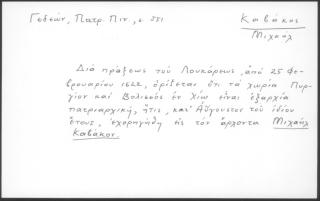 Γεδεών, Πατρ. Πιν., σ. 551
Καβάκος
Μιχαήλ
Διὰ πράξεως τοῦ Λουκάρεως, ἀπὸ 25 Φε-
βρουαρίου 1622, ὁρίζεται ὅτι τὰ χωρία Πυρ-
γίον καὶ Βολισσὸς ἐν Χίῳ εἶναι ἐξαρχία
πατριαρχική, ἥτις, κατ' Αὔγουστον τοῦ ἰδίου
ἔτους, ἐχορηγήθη εἰς τὸν ἄρχοντα Μιχαὴλ
Καβάκον.